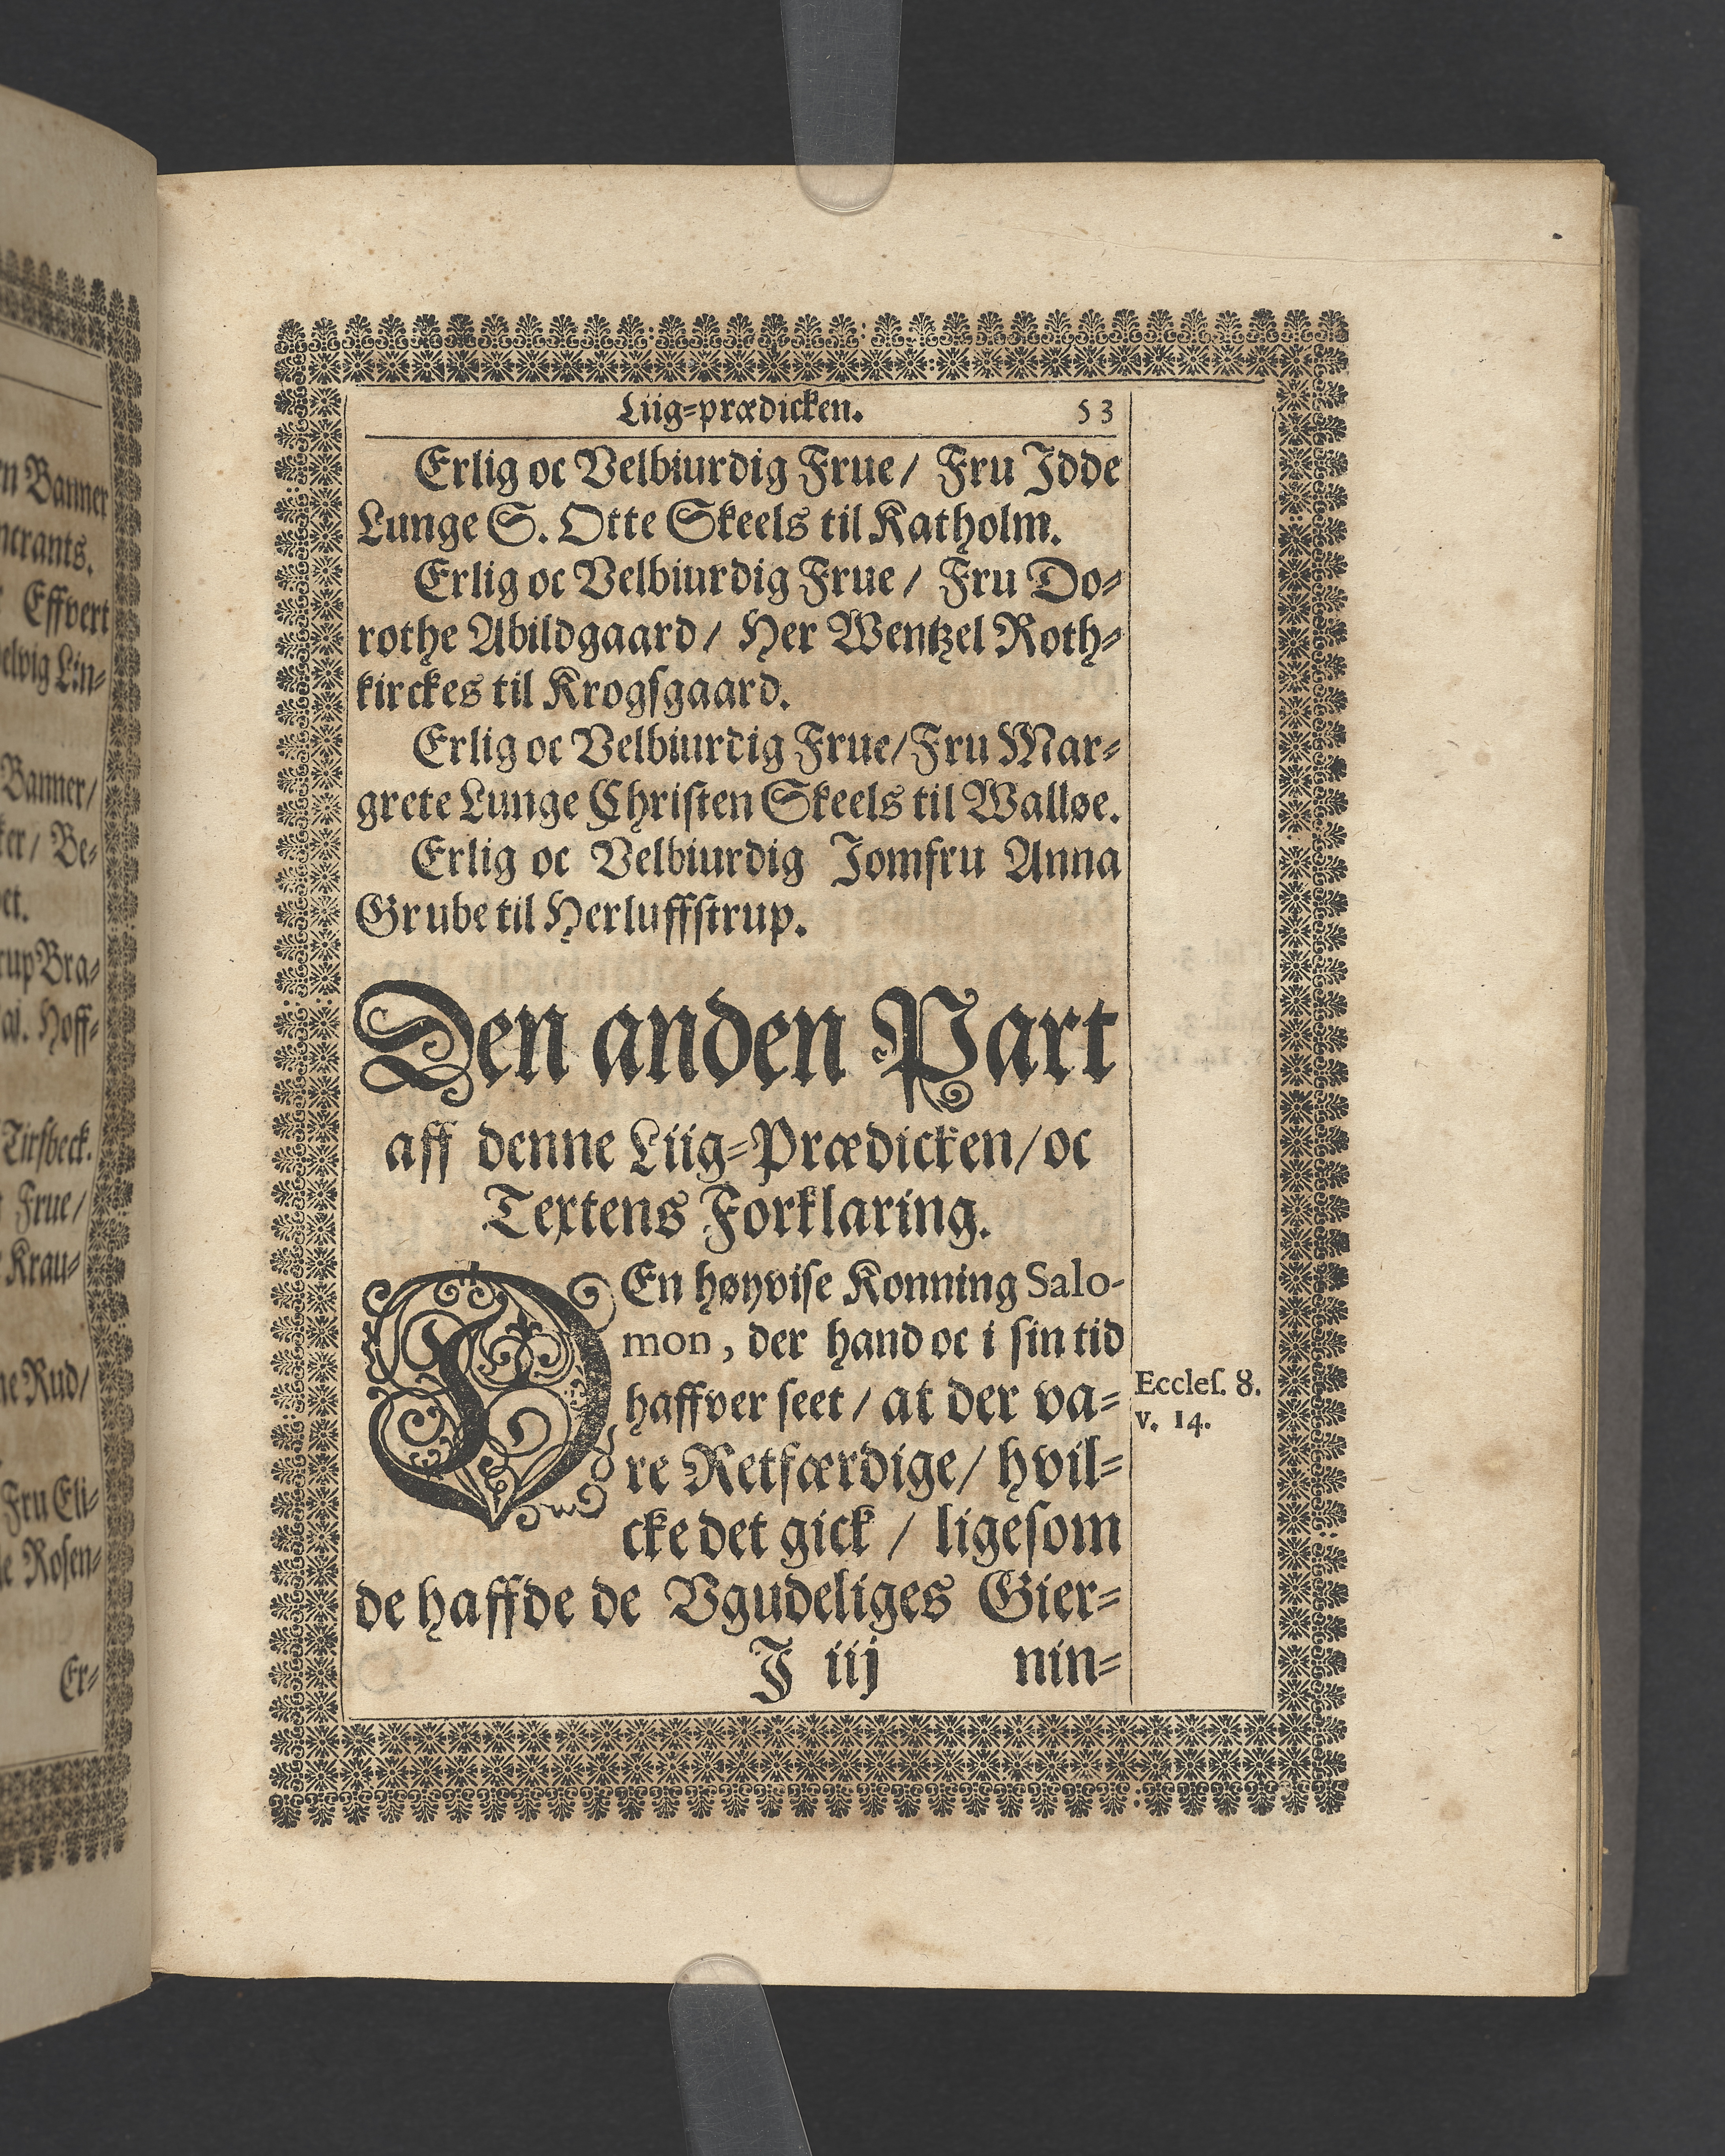 n Banner
ntrants.
Effvert
elvig Lin-
Banner/
ker/ Be-
et.
rup Bra-
ai. Hoff-
Tirsbeck.
Frue/
Krau-
ne Rud/
Fru Eli-
le Rosen-
Er-
Liig-prædicken. 53
Erlig oc Velbiurdig Frue/ Fru Idde
Lunge S. Otte Skeels til Katholm.
Erlig oc Velbiurdig Frue/ Fru Do-
rothe Abildgaard/ Her Wentzel Roth-
kirckes til Krogſgaard.
Erlig oc Velbiurdig Frue/ Fru Mar-
grete Lunge Chriſten Skeels til Walløe.
Erlig oc Velbiurdig Jomfru Anna
Grube til Herluffſtrup.
Den anden Part
aff denne Liig-Prædicken/ oc
Textens Forklaring.
DEn høyviſe Konning Salo-
mon, der hand oc i ſin tid
haffver ſeet/ at der va-
re Retfærdige/ hvil-
cke det gick/ ligeſom
de haffde de Vgudeliges Gier-
Eccleſ. 8.
v. 14.
J iij nin-